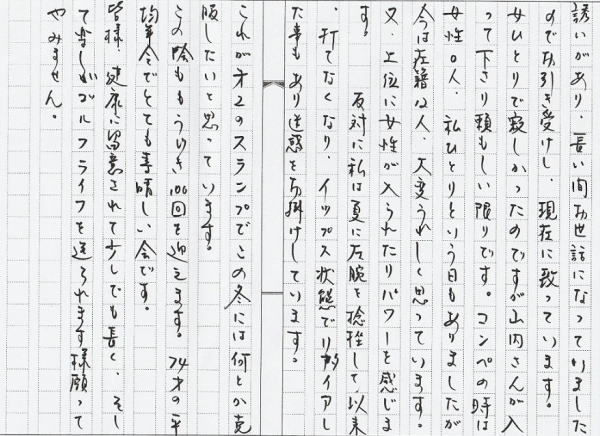 誘いがあり、長い間お世話になっていました
のでお引き受けし、現在に致っています。
女ひとりで寂しかったのですが山内さんが入
って下さり頼もしい限りです。コンペの時は
女性0人、私ひとりという日もありましたが
今は在籍12人、大変うれしく思っています。
又、上位に女性が入られたりパワーを感じま
す。
反対に私は夏に左腕を捻挫して、以来
、打てなくなり、イップス状態でリタイアし
た事もあり迷惑をお掛けしています。
これが才2のスランプでこの冬には何とか克
服したいと思っています。
この会ももうじき100回を迎えます。74才の平
均年令でとても素晴しい会です。
皆様、健康に留意されて少しでも長く、そし
て楽しいゴルフライフを送られます様願って
やみません。